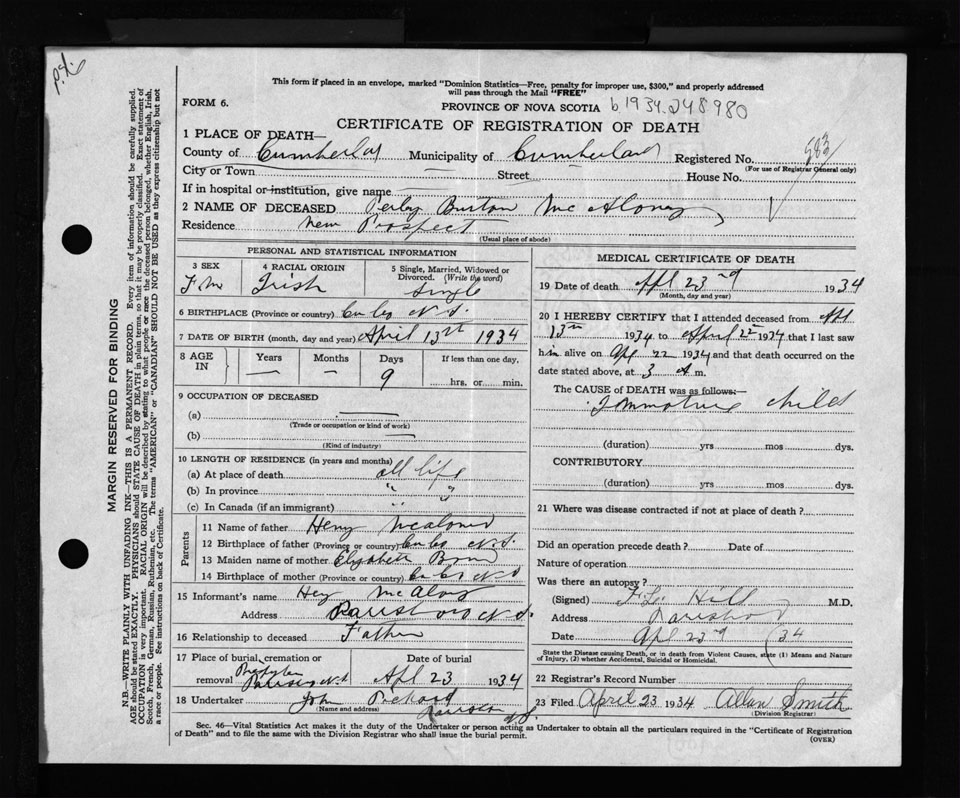 This form if placed in an envelope, marked "Dominion Statistics—Free, penalty for improper use, $300," and properly addressed
will pass through the Mail "FREE"
FORM 6.
PROVINCE OF NOVA SCOTIA b1934.048980
CERTIFICATE OF REGISTRATION OF DEATH
1 PLACE OF DEATH—
County of Cumberland Municipality of Cumberland Registered No. 983
City or Town — Street House No. (For use of Registrar General only)
If in hospital or institution, give name
2 NAME OF DECEASED Burton McAloney
Residence New Prospect
(Usual place of abode)
PERSONAL AND STATISTICAL INFORMATION
3 SEX 4 RACIAL ORIGIN 5 Single, Married, Widowed or Divorced. (Write the word)
Irish Single
6 BIRTHPLACE (Province or country) N.S.
7 DATE OF BIRTH (month, day and year) April 13th 1934
8 AGE IN Years Months Days If less than one day,
— — 9 hrs. or min.
9 OCCUPATION OF DECEASED
(a) —
(Trade or occupation or kind of work)
(b) —
(Kind of industry)
10 LENGTH OF RESIDENCE (in years and months)
(a) At place of death all life
(b) In province " "
(c) In Canada (if an immigrant) "
Parents
11 Name of father
12 Birthplace of father (Province or country) N.S.
13 Maiden name of mother
14 Birthplace of mother (Province or country) N.S
15 Informant's name
Address N.S.
16 Relationship to deceased Father
17 Place of burial, cremation or removal Date of burial
April 23 1934
18 Undertaker John
(Name and address)
N.S.
MEDICAL CERTIFICATE OF DEATH
19 Date of death Apl 23rd 1934
(Month, day and year)
20 I HEREBY CERTIFY that I attended deceased from Apl
13th 1934 to April 22nd 1934 that I last saw
him alive on Apl 22 1934 and that death occurred on the
date stated above, at 3 A m.
The CAUSE of DEATH was as follows:—
Immature child
(duration) yrs mos dys.
CONTRIBUTORY
(duration) yrs mos dys.
21 Where was disease contracted if not at place of death?
Did an operation precede death? Date of
Nature of operation
Was there an autopsy?
(Signed) Hill M.D.
Address
Date Apl 23rd 34
State the Disease causing Death, or in death from Violent Causes, state (1) Means and Nature
of Injury, (2) whether Accidental, Suicidal or Homicidal.
22 Registrar's Record Number
23 Filed April 23 1934 Allan Smith
(Division Registrar)
Sec. 46—Vital Statistics Act makes it the duty of the Undertaker or person acting as Undertaker to obtain all the particulars required in the "Certificate of Registration
of Death" and to file the same with the Division Registrar who shall issue the burial permit.
(OVER)
MARGIN RESERVED FOR BINDING
N.B.—WRITE PLAINLY WITH UNFADING INK—THIS IS A PERMANENT RECORD. Every item of information should be carefully supplied.
AGE should be stated EXACTLY. PHYSICIANS should STATE CAUSE OF DEATH in plain terms, so that it may be properly classified. Exact statement of
OCCUPATION is very important. RACIAL ORIGIN will be described by stating to what people or race the deceased person belonged, whether English, Irish,
Scotch, French, German, Russian, Ruthenian, etc. The terms "AMERICAN" or "CANADIAN" SHOULD NOT BE USED as they express citizenship but not
a race or people. See instructions on back of Certificate.